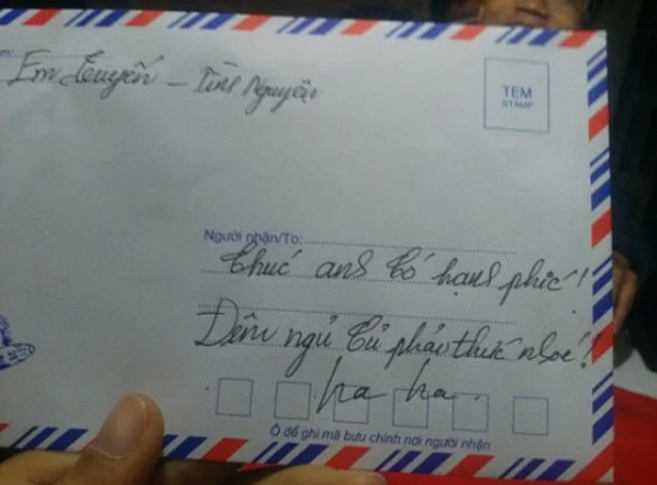 Em Tuyến – Tình Nguyện
TEM
STAMP
Người nhận/To:
Chúc anh Cố hạnh phúc!
Đêm ngủ cứ pháo thức nhoé!
ha ha.
Ô để ghi mã bưu chính nơi người nhận